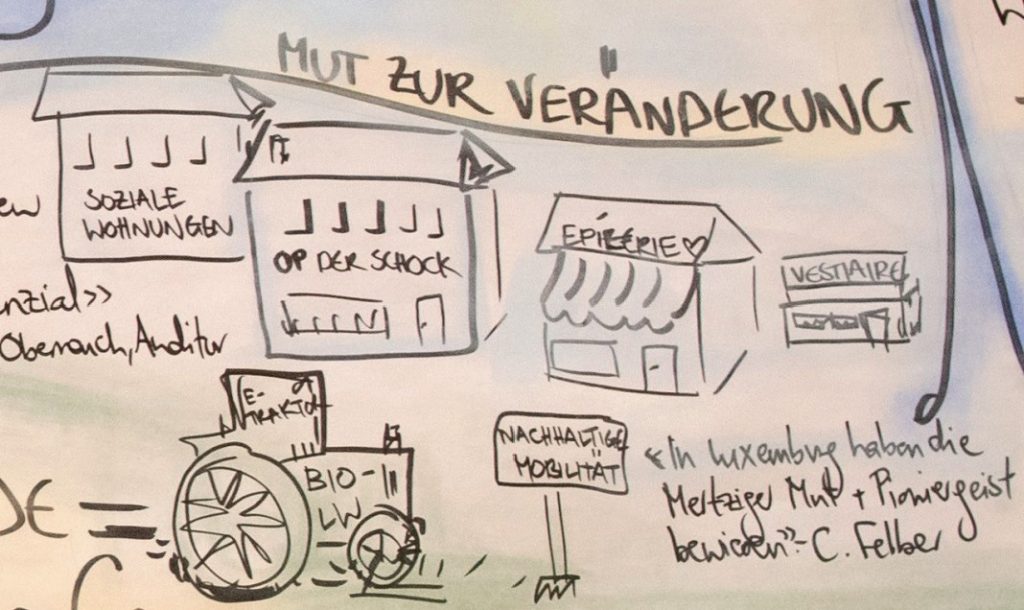 MUT ZUR VERÄNDERUNG
SOZIALE
WOHNUNGEN
OP DER SCHOCK
EPICERIE
VESTIAIRE
nzial>>
Oberrauch, Auditur
E-
TRAKTOR
BIO-
LW
NACHHALTIGE
MOBILITÄT
«In Luxemburg haben die
Mertziger Mut + Pioniergeist
bewiesen»- C. Felber
DE =